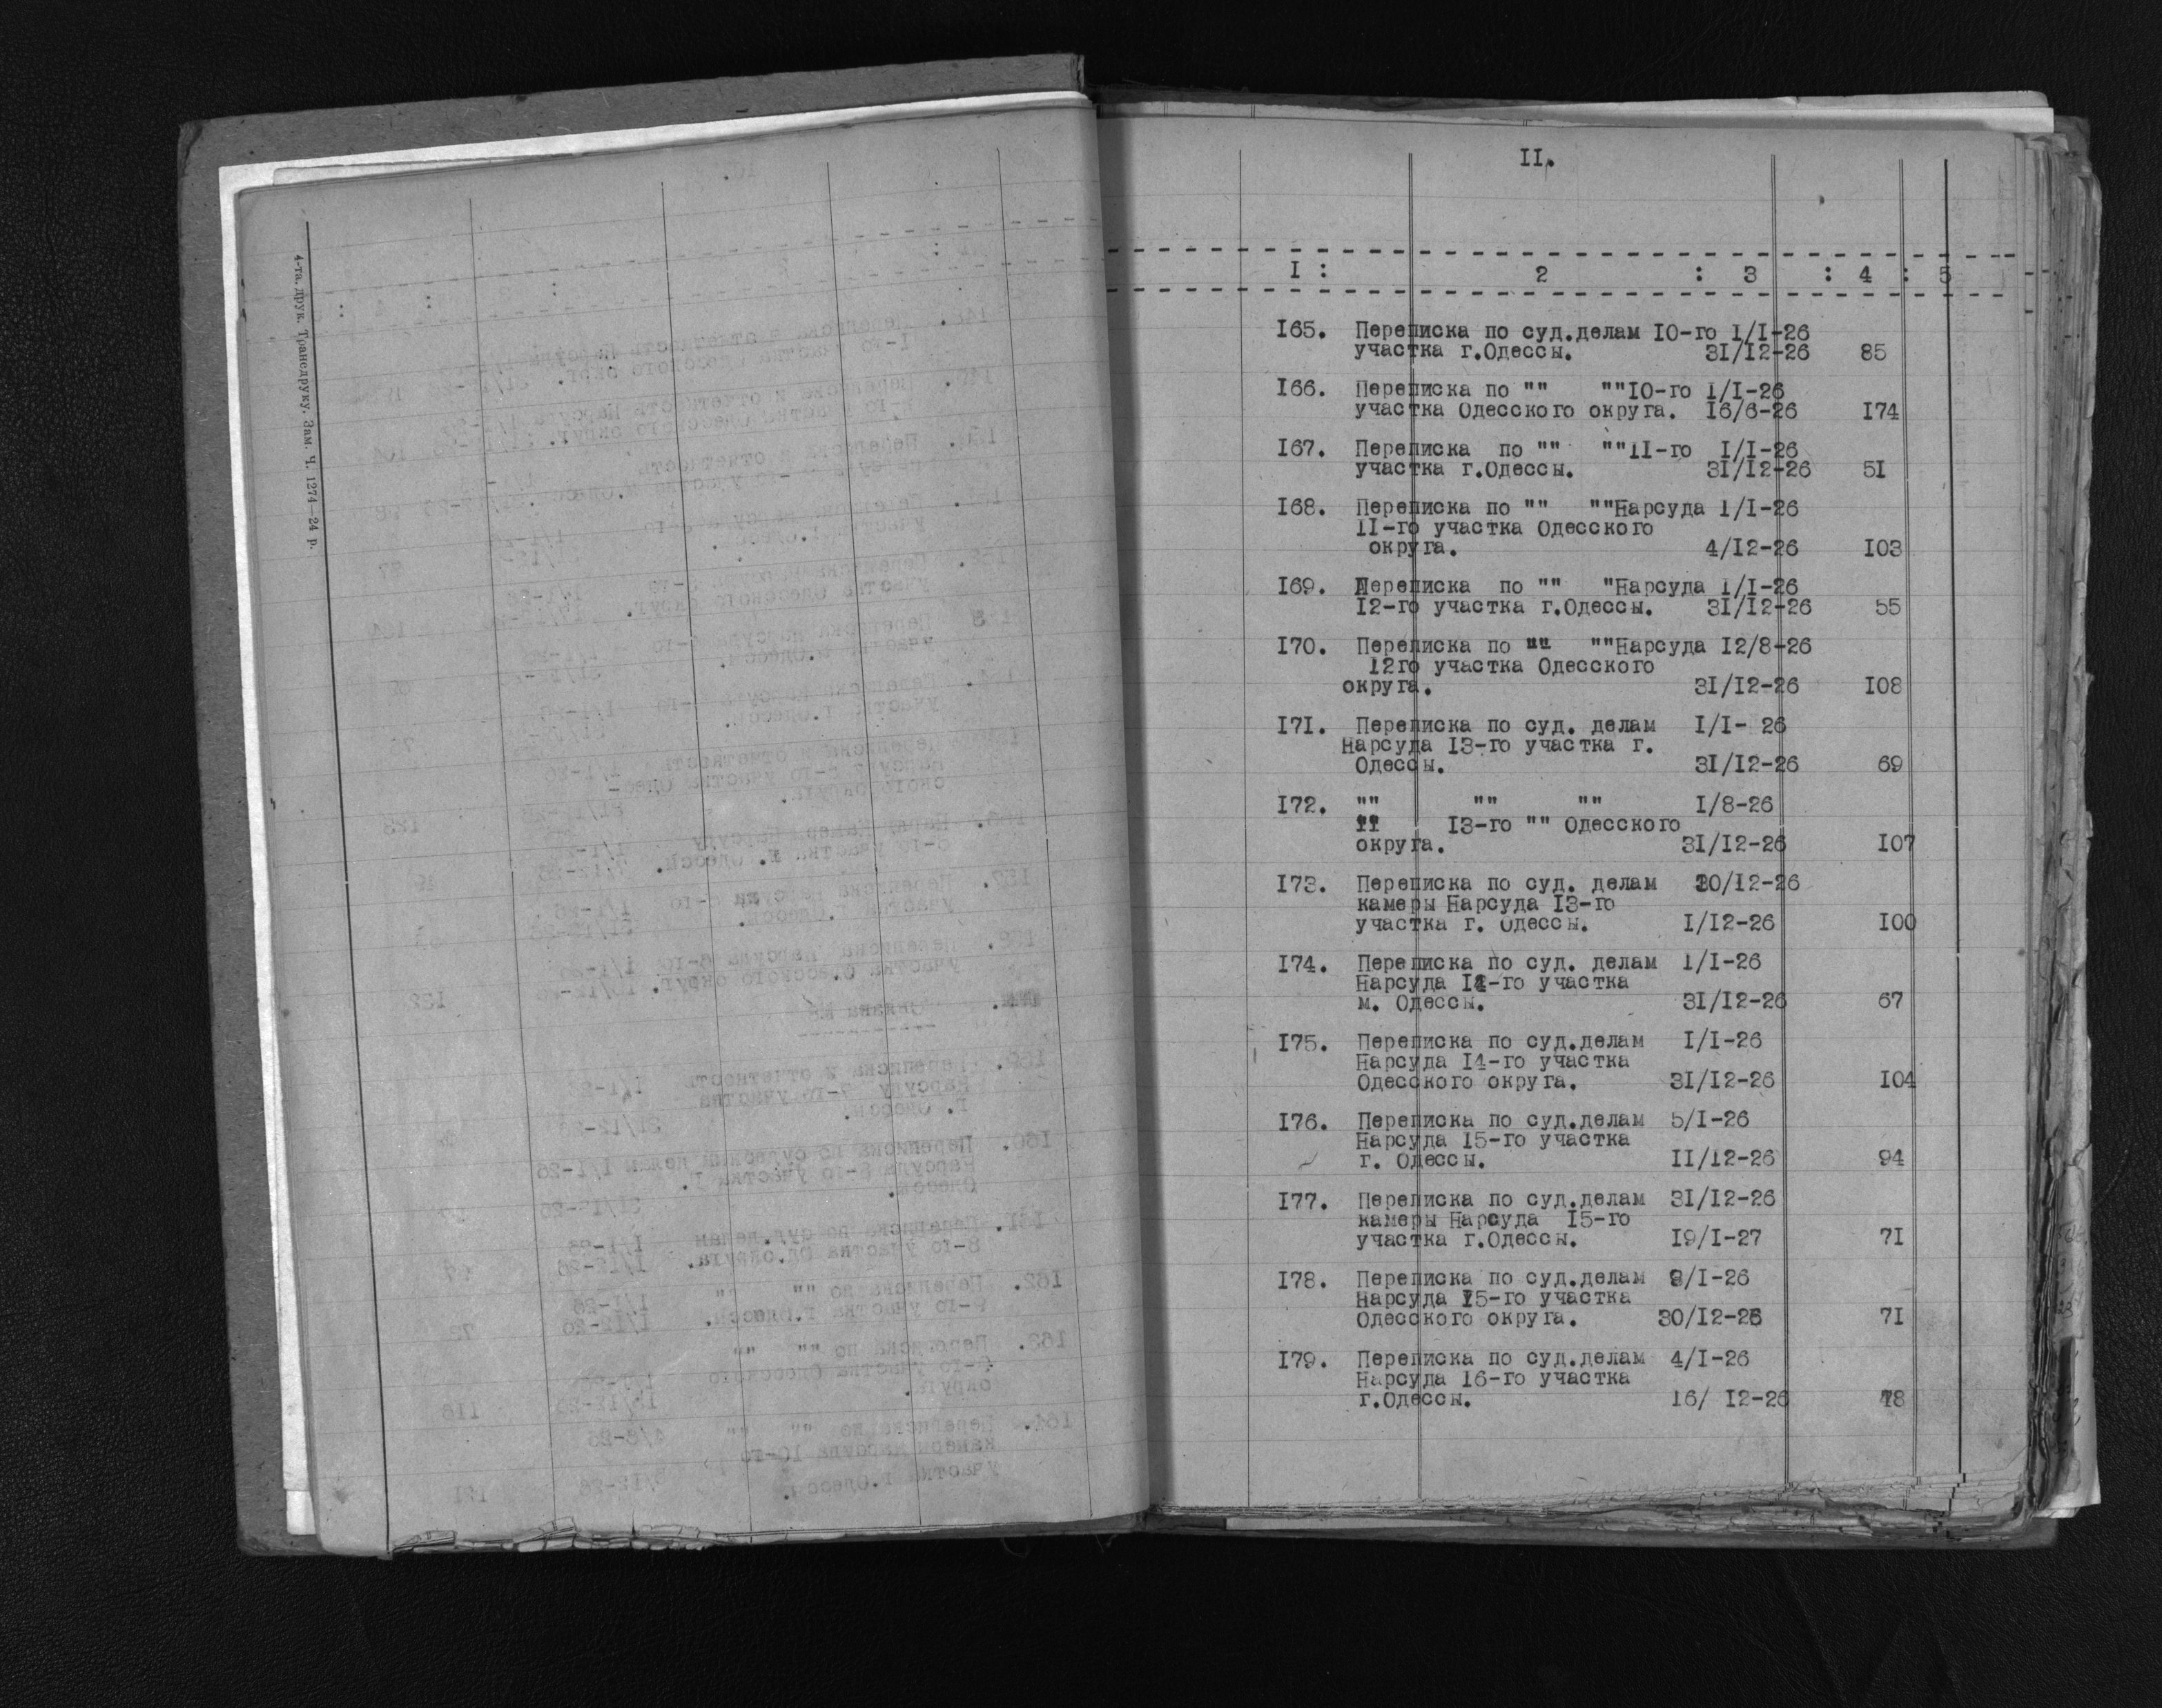 4-та друк. Трансдруку. Зам. Ч. 1274—24 р.
II.
I : 2 : 3 : 4 : 5
I65. Переписка по суд.делам I0-го 1/I-26
участка г.Одессы. 31/I2-26 85
I66. Переписка по "" ""I0-го 1/I-26
участка Одесского округа. I6/6-26 I74
I67. Переписка по "" ""II-го I/I-26
участка г.Одессы. 31/I2-26 5I
I68. Переписка по "" ""Нарсуда 1/I-26
II-го участка Одесского
округа. 4/I2-26 I03
I69. Переписка по "" "Нарсуда 1/I-26
I2-го участка г.Одессы. 3I/I2-26 55
I70. Переписка по "" ""Нарсуда I2/8-26
I2го участка Одесского
округа. 3I/I2-26 I08
I7I. Переписка по суд. делам I/I- 26
Нарсуда I3-го участка г.
Одессы. 3I/I2-26 69
I72. "" "" "" I/8-26
"" I3-го "" Одесского
округа. 3I/I2-26 I07
I73. Переписка по суд. делам 30/I2-26
камеры Нарсуда I3-го
участка г. Одессы. I/I2-26 I00
I74. Переписка по суд. делам 1/I-26
Нарсуда I4-го участка
м. Одессы. 3I/I2-26 67
I75. Переписка по суд.делам I/I-26
Нарсуда I4-го участка
Одесского округа. 3I/I2-26 I04
I76. Переписка по суд.делам 5/I-26
Нарсуда I5-го участка
г. Одессы. II/I2-26 94
I77. Переписка по суд.делам 3I/I2-26
камеры Нарсуда I5-го
участка г.Одессы. I9/I-27 7I
I78. Переписка по суд.делам 8/I-26
Нарсуда I5-го участка
Одесского округа. 30/I2-26 7I
I79. Переписка по суд.делам 4/I-26
Нарсуда I6-го участка
г.Одессы. I6/ I2-26 48